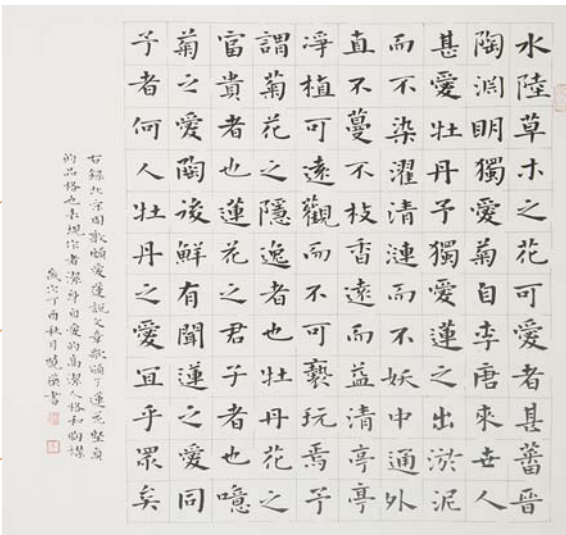 水陸草木之花可愛者甚蕃晋
陶渊明獨愛菊自李唐來世人
甚愛牡丹予獨愛蓮之出淤泥
而不染濯清漣而不妖中通外
直不蔓不枝香遠而益清亭亭
淨植可遠觀而不可褻玩焉予
謂菊花之隱逸者也牡丹花之
富貴者也蓮花之君子者也噫
菊之愛陶後鮮有聞蓮之愛同
予者何人牡丹之愛宜乎眾矣
右録北宋周敦頤愛蓮説文章歌頌了蓮花堅貞
的品格也表現作者潔身自愛的高潔人格和胸襟
歲次丁酉秋月曉書